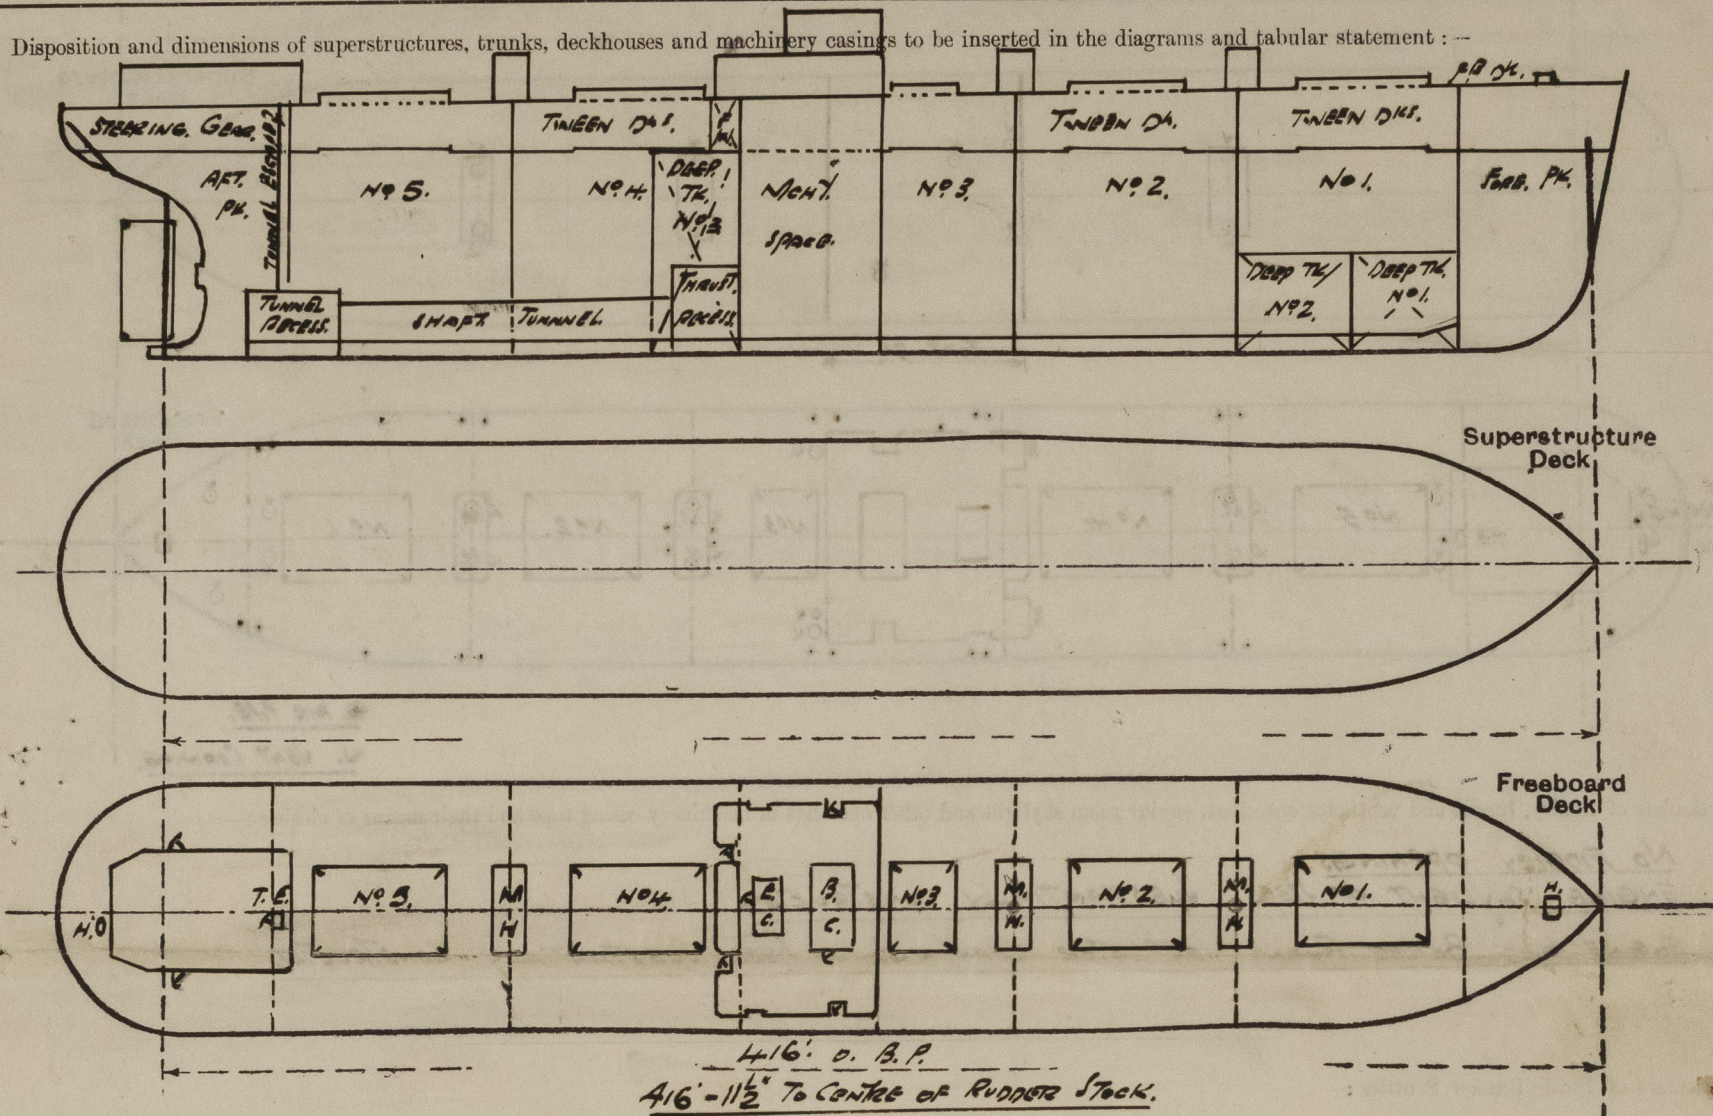 Disposition and dimensions of superstructures, trunks, deckhouses and machinery casings to be inserted in the diagrams and tabular statement : —
F.B DK.
STEERING. GEAR.
TWEEN DKS.
TWEEN DK.
TWEEN DKS.
TUNNEL
AFT.
PK.
No 5.
No 4.
DEEP.
TK.
No 3
MCHY.
SPACE.
No 3.
No 2.
No 1.
FORE. PK.
TUNNEL
RECESS.
SHAFT. TUNNEL.
THRUST.
RECESS.
DEEP TK
No 2.
DEEP TK.
No 1.
Superstructure
Deck
Freeboard
Deck
H.
T. E.
No 5.
M
H
No 4.
E.
C.
B.
C.
No 3.
M.
H.
No 2.
M.
H.
No 1.
H.
416'. 0. B.P.
416'-11½" TO CENTRE OF RUDDER STOCK.